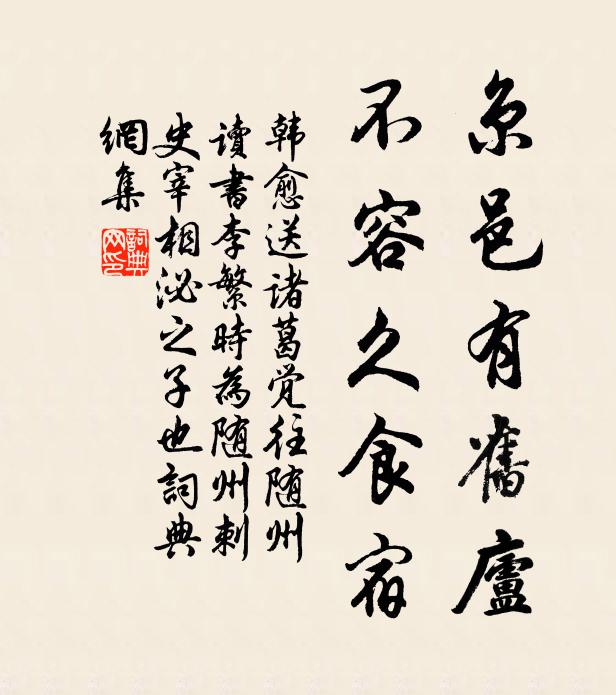 京邑有舊廬
不容久食宿
韩愈送诸葛觉往随州
讀書李繁時為随州刺
史宰相泌之子也詞典
網集
詞典
网印